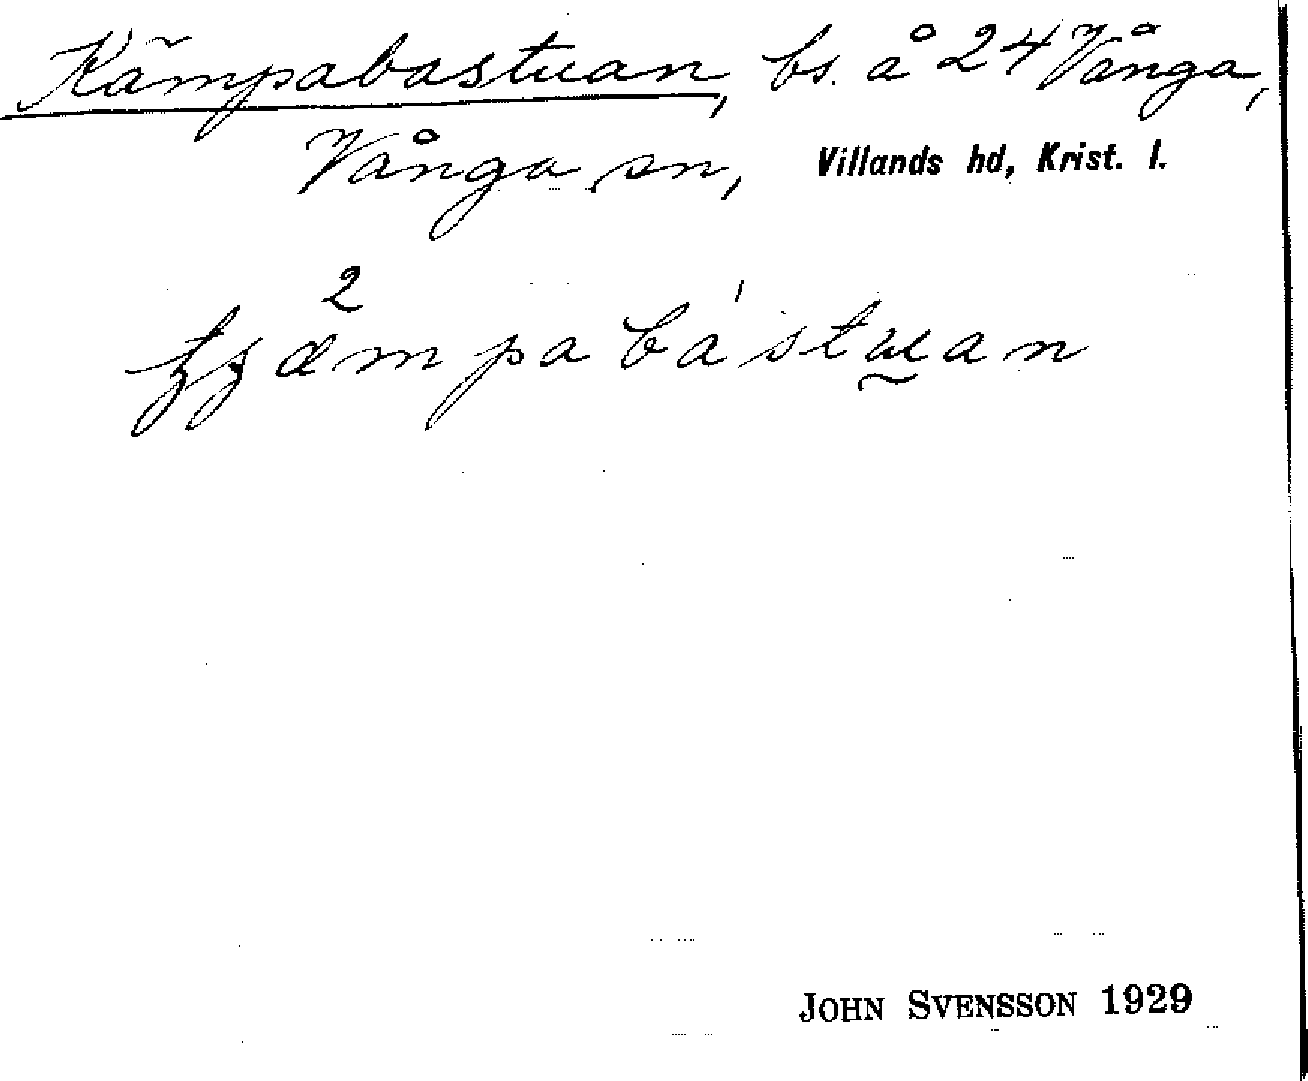 Kämpabastuan, bs. å 24 Vånga,
Vånga sn, Villands hd, Krist. l.
2
kjämpabástuan
JOHN SVENSSON 1929